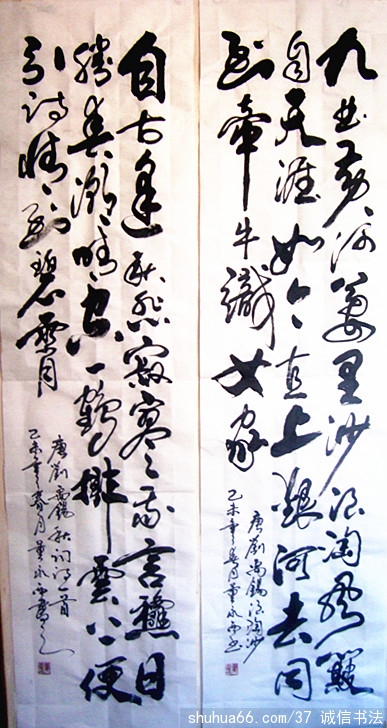 九曲黄河万里沙浪淘风簸
自天涯如今直上银河去同
到牵牛织女家
唐刘禹锡浪淘沙
乙未年春月董永西书
自古逢秋悲寂寥我言秋日
胜春潮晴空一鹤排云上便
引诗情到碧霄
唐刘禹锡秋词诗一首
乙未年春月董永西书之
shuhua66.com/37 诚信书法